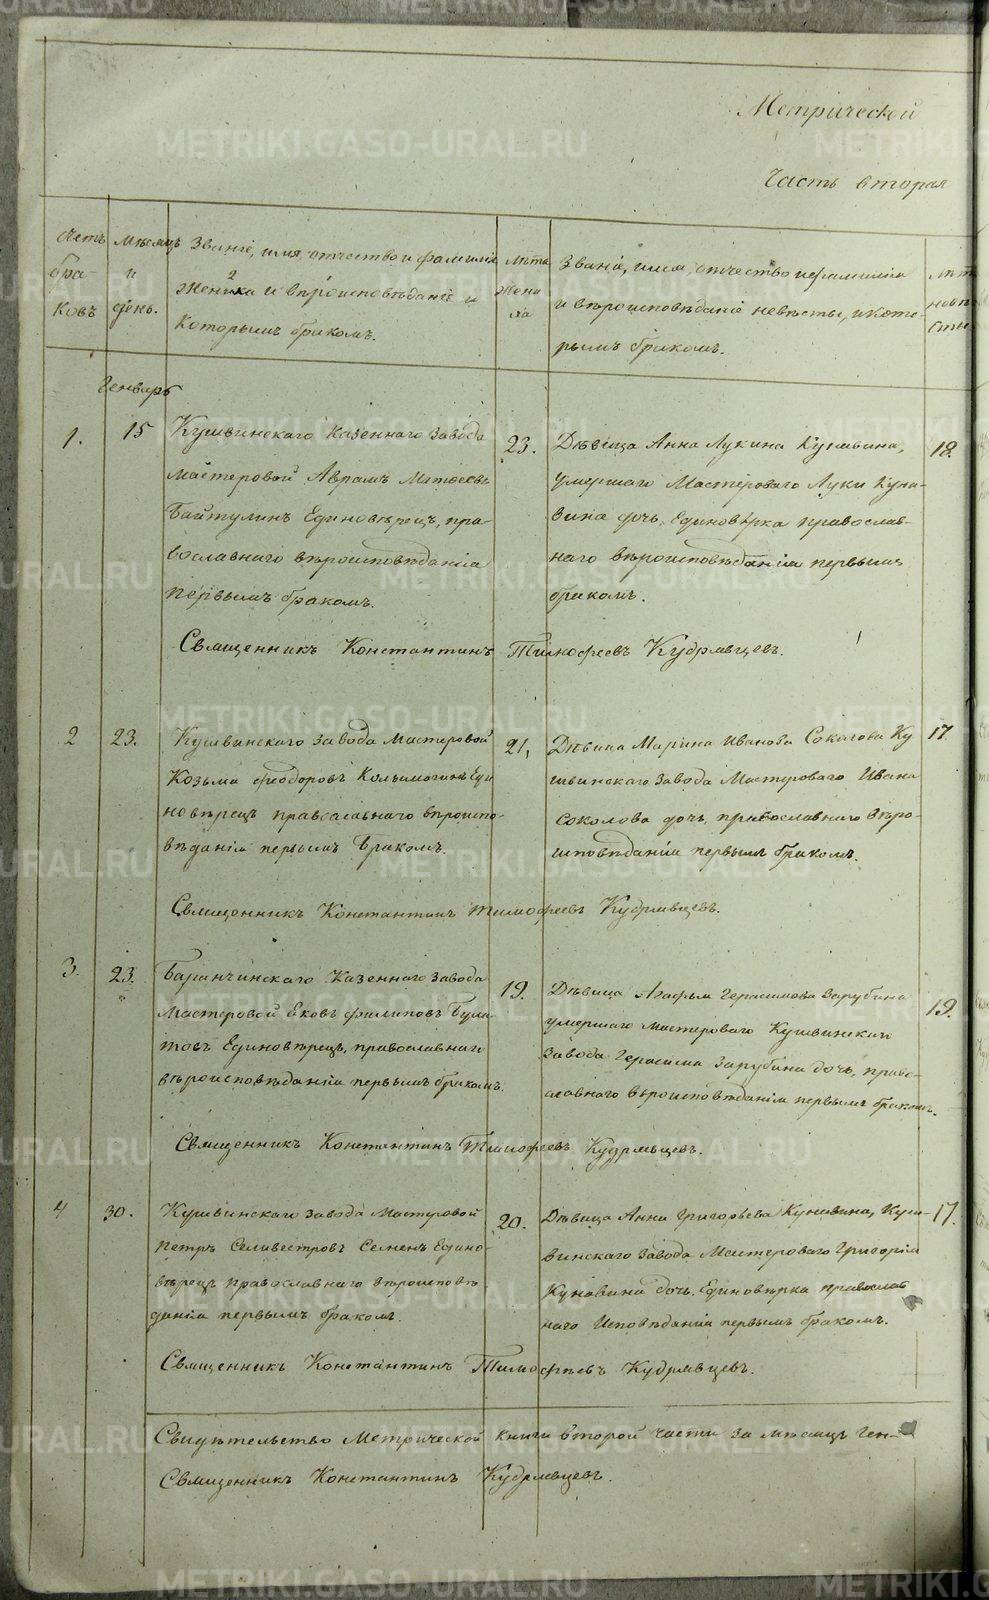 Метрической
Часть вторая
Счетъ браковъ
Мѣсяцъ и день.
Званіе, имя, отчество и фамилія
жениха и вѣроисповѣданіе и
которымъ бракомъ.
Лѣта жениха
Званіе, имя, отчество и фамилія
и вѣроисповѣданіе невѣсты, и кото-
рымъ бракомъ.
Лѣт невѣ сты
Генварь
1.
15
Кушвинскаго казеннаго завода
мастеровой Аврамъ Матвеевъ
Байтулинъ Единовѣрецъ, пра-
вославнаго вѣроисповѣданія
первымъ бракомъ.
23.
Дѣвица Анна Лукина Кунавина,
умершаго Мастероваго Луки Куна-
вина дочь, Единовѣрка православ-
наго вѣроисповѣданія первымъ
бракомъ.
18.
Священникъ Константинъ Тимофеевъ Кудрявцевъ.
2
23.
Кушвинскаго завода Мастеровой
Козьма Феодоровъ Единовѣрецъ православнаго вѣроиспо-
вѣданія первымъ бракомъ.
21,
Дѣвица Марина Иванова Соколова Ку
швинскаго завода Мастероваго Ивана
Соколова дочь, православнаго вѣро-
исповѣданія первымъ бракомъ.
17
Священникъ Константинъ Тимофеевъ Кудрявцевъ.
3.
23.
Баранчинскаго Казеннаго завода
Мастеровой Ековъ Филиповъ Була-
товъ Единовѣрецъ, православнаго
вѣроисповѣданія первымъ бракомъ.
19.
Дѣвица Агафья Герасимова Зарубина
умершаго мастероваго Кушвинскаго
завода Герасима Зарубина дочь, право-
славнаго вѣроисповѣданія первымъ бракомъ.
19.
Священникъ Константинъ Тимофеевъ Кудрявцевъ.
4
30.
Кушвинскаго завода Мастеровой
Петръ Селивестровъ Едино-
вѣрецъ православнаго вѣроисповѣ
данія первымъ бракомъ.
20.
Дѣвица Анна Григорьева Кунавина, Куш-
винскаго завода Мастероваго Григорія
Кунавина дочь, Единовѣрка православ
наго Исповѣданія первымъ бракомъ.
17.
Священникъ Константинъ Тимофѣевъ Кудрявцевъ.
Свидѣтельство Метрической книги второй части за мѣсяцъ Ген-
Священникъ Константинъ Кудрявцевъ.
METRIKI.GASO-URAL.RU